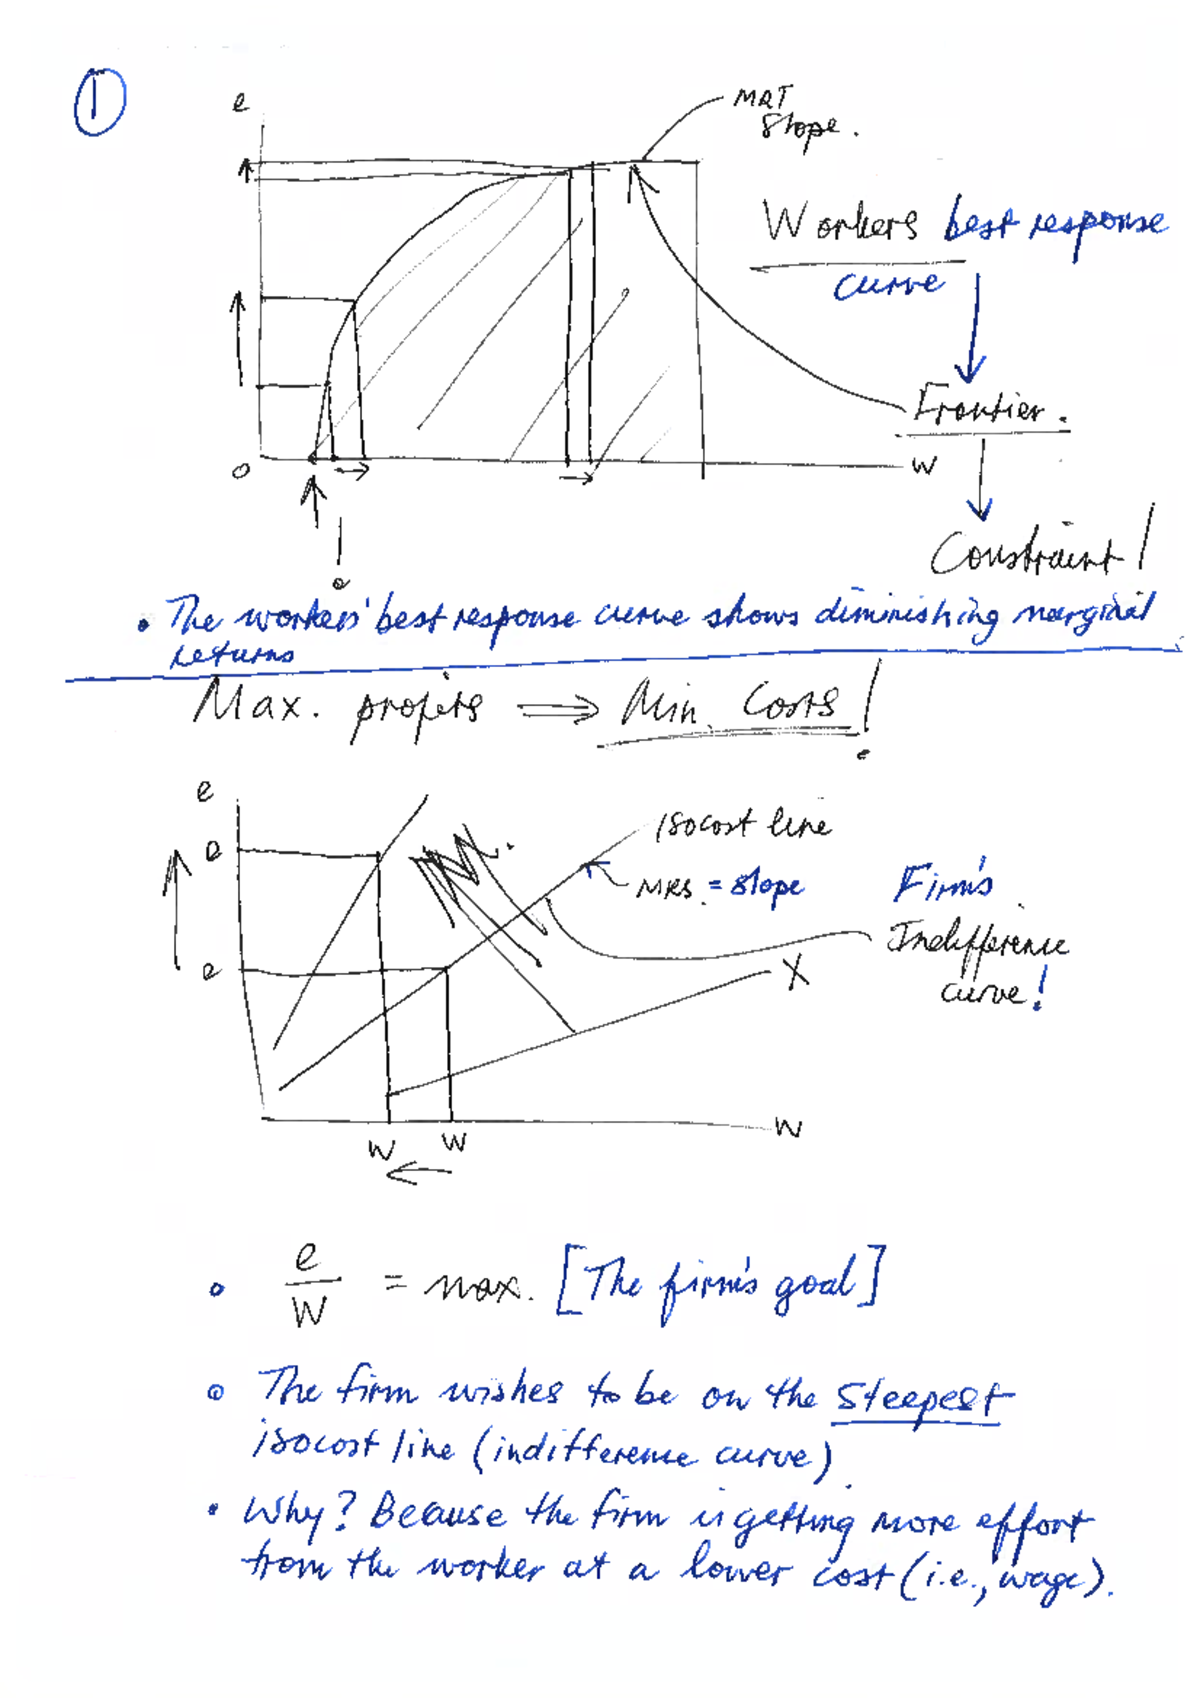 1
e
MRT
slope.
Workers best response
curve
Frontier.
o
w
Constraint!
• The workers' best response curve shows diminishing marginal
returns
Max. profits ⟹ Min. Costs!
e
e
isocost line
MRS = slope
Firm's
Indifference
curve!
e
X
w
w
w
• e/w = max. [The firm's goal]
• The firm wishes to be on the steepest
isocost line (indifference curve)
• Why? Because the firm is getting more effort
from the worker at a lower cost (i.e., wage).